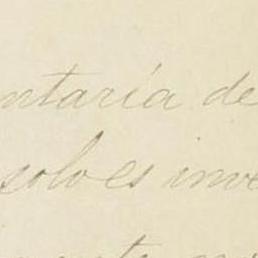 ntaría de
solo es inve